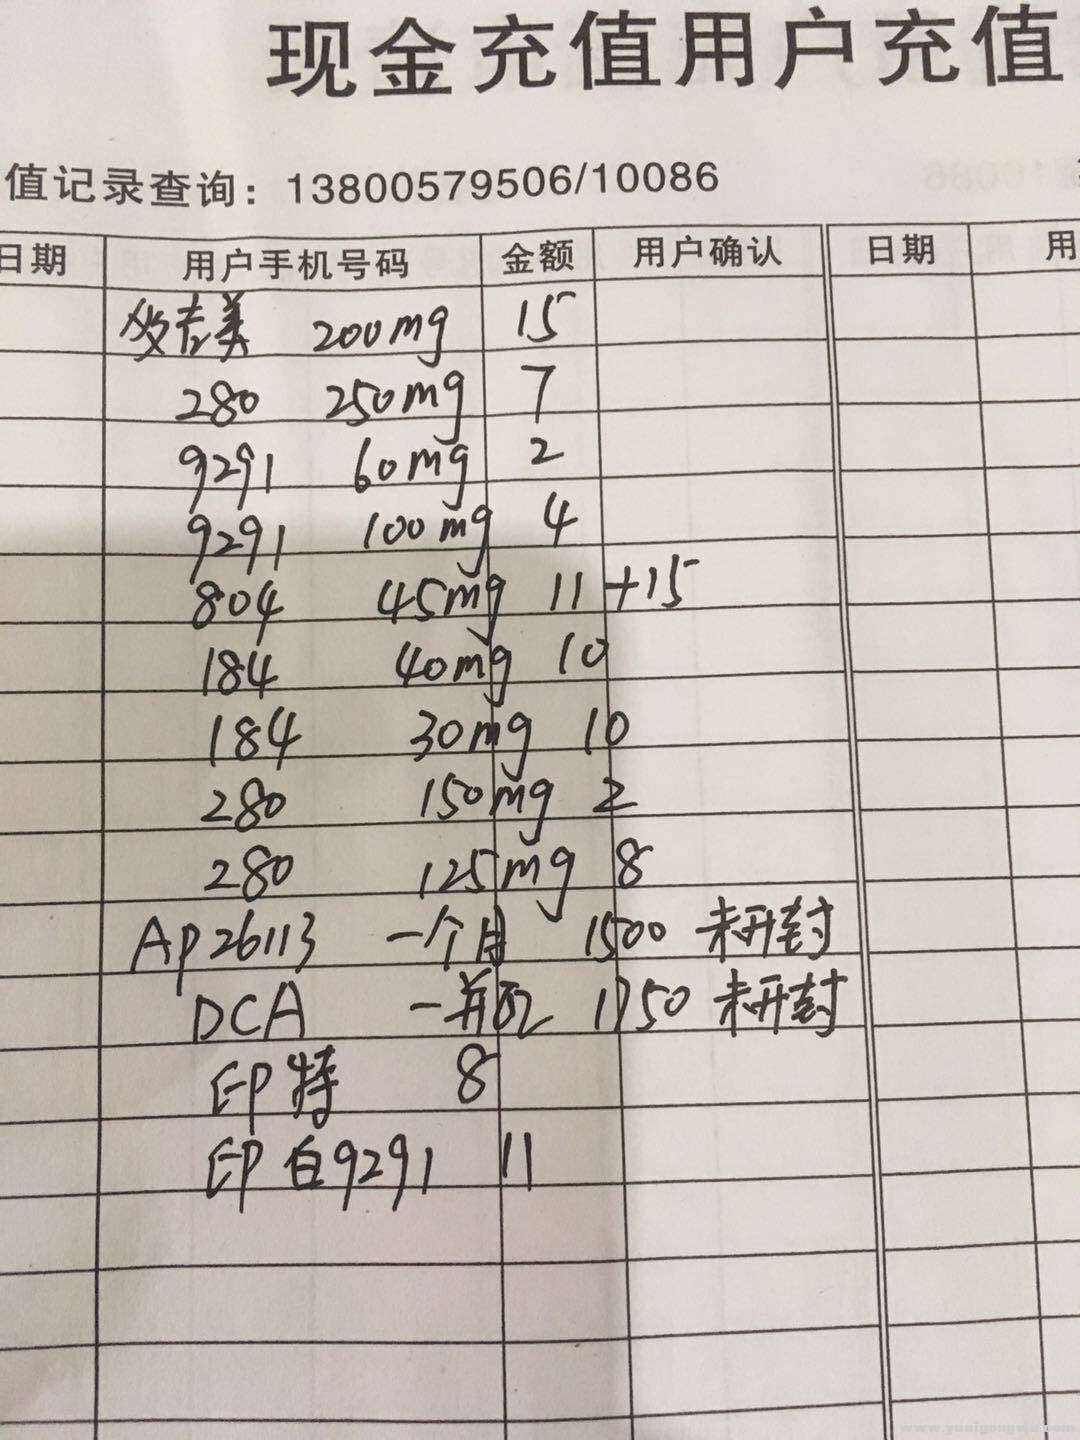 现金充值用户充值
值记录查询：13800579506/10086
日期 用户手机号码 金额 用户确认 日期 用
200mg 15
280 250mg 7
9291 60mg 2
9291 100mg 4
804 45mg 11+15
184 40mg 10
184 30mg 10
280 150mg 2
280 125mg 8
AP26113 一个月 1500 未开封
DCA 1750 未开封
EP特 8
EP白9291 11